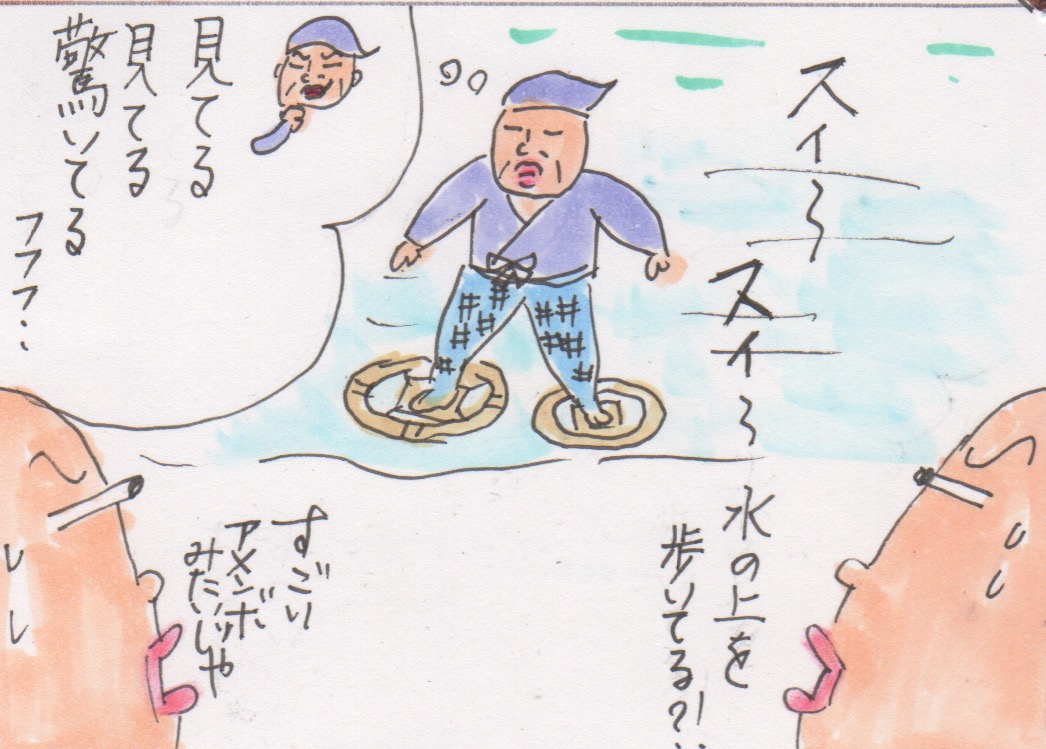 スイ〜
スイ〜
水の上を
歩いてる?!‥
見てる
見てる
驚いてる
フフフ‥
すごい
アメンボ
みたいじゃ